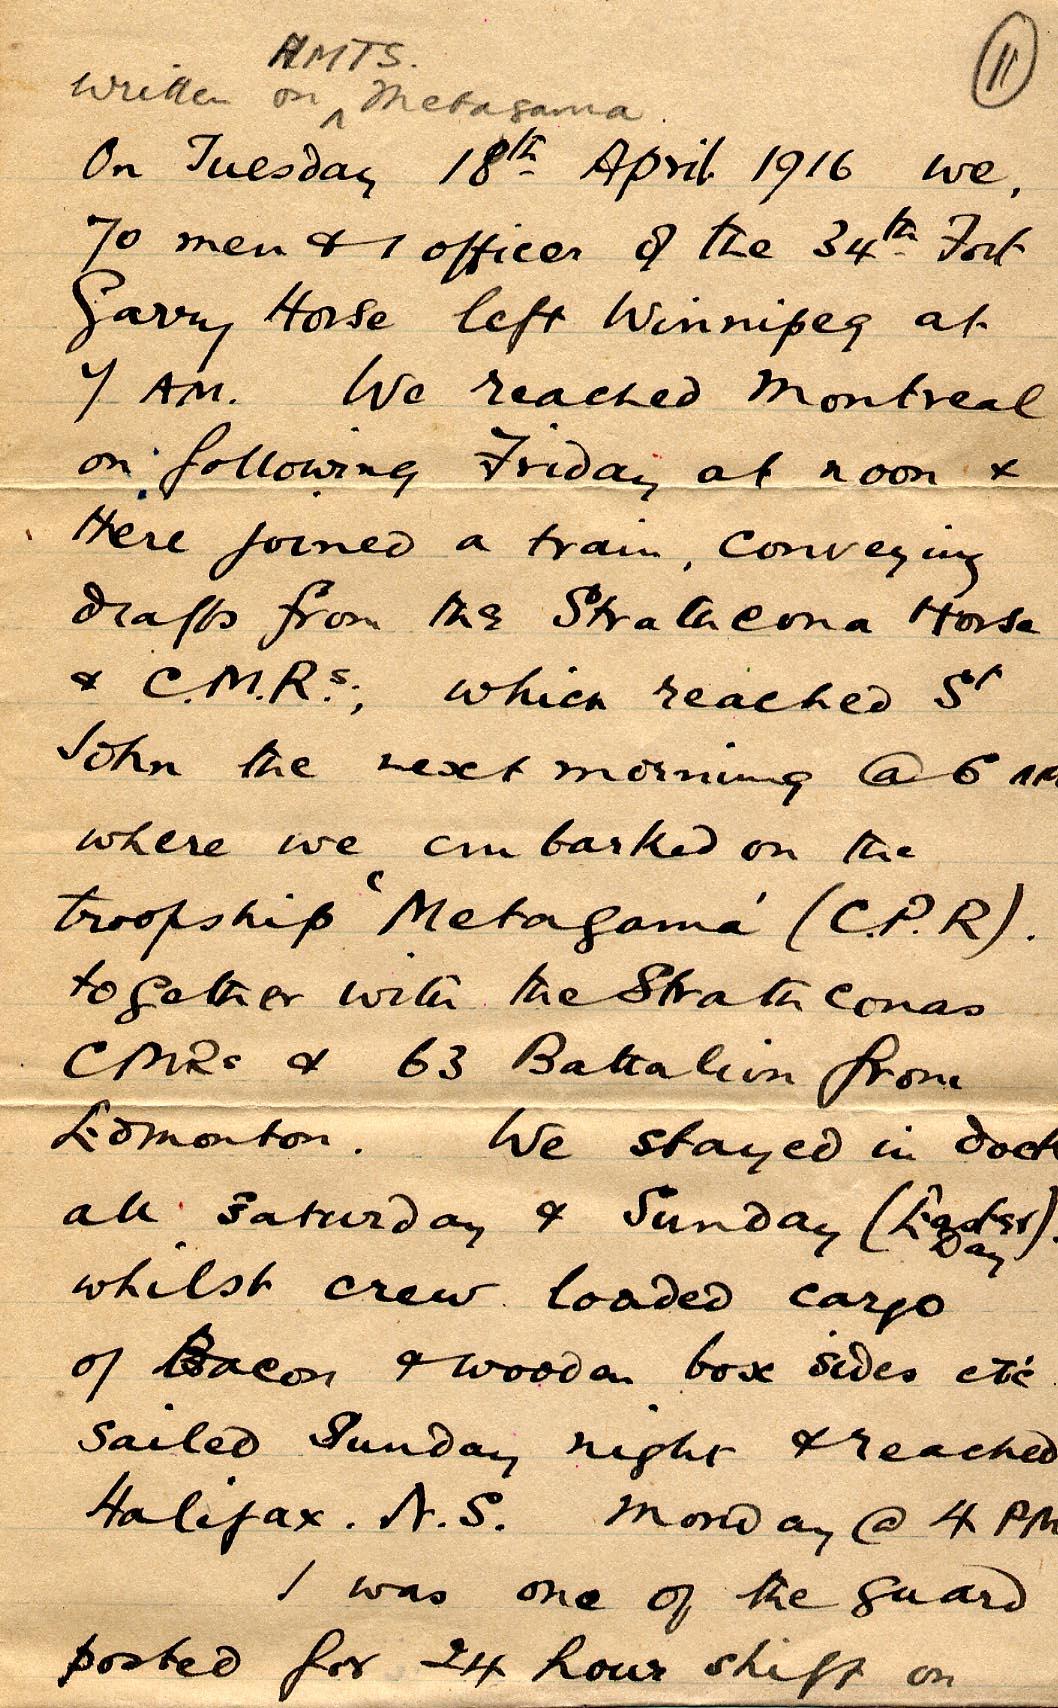 HMTS.
(11)
written on ^ Metagama.
On Tuesday 18th April 1916 we,
70 men & 1 officer of the 34th Fort
Garry Horse left Winnipeg at
7 AM. We reached Montreal
on following Friday at noon &
Here joined a train, conveying
drafts from the Strathcona Horse
& C.M.R.s; which reached St
John the next morning @ 6 AM
where we embarked on the
troopship 'Metagama' (C.P.R).
together with the Strathconas
CMRs & 63 Battalion from
Edmonton. We stayed in dock
all Saturday & Sunday (Easter).
Day
whilst crew loaded cargo
of Bacon & wooden box sides etc
sailed Sunday night & reached
Halifax. N.S. Monday @ 4 PM
I was one of the guard
posted for 24 hour shift on